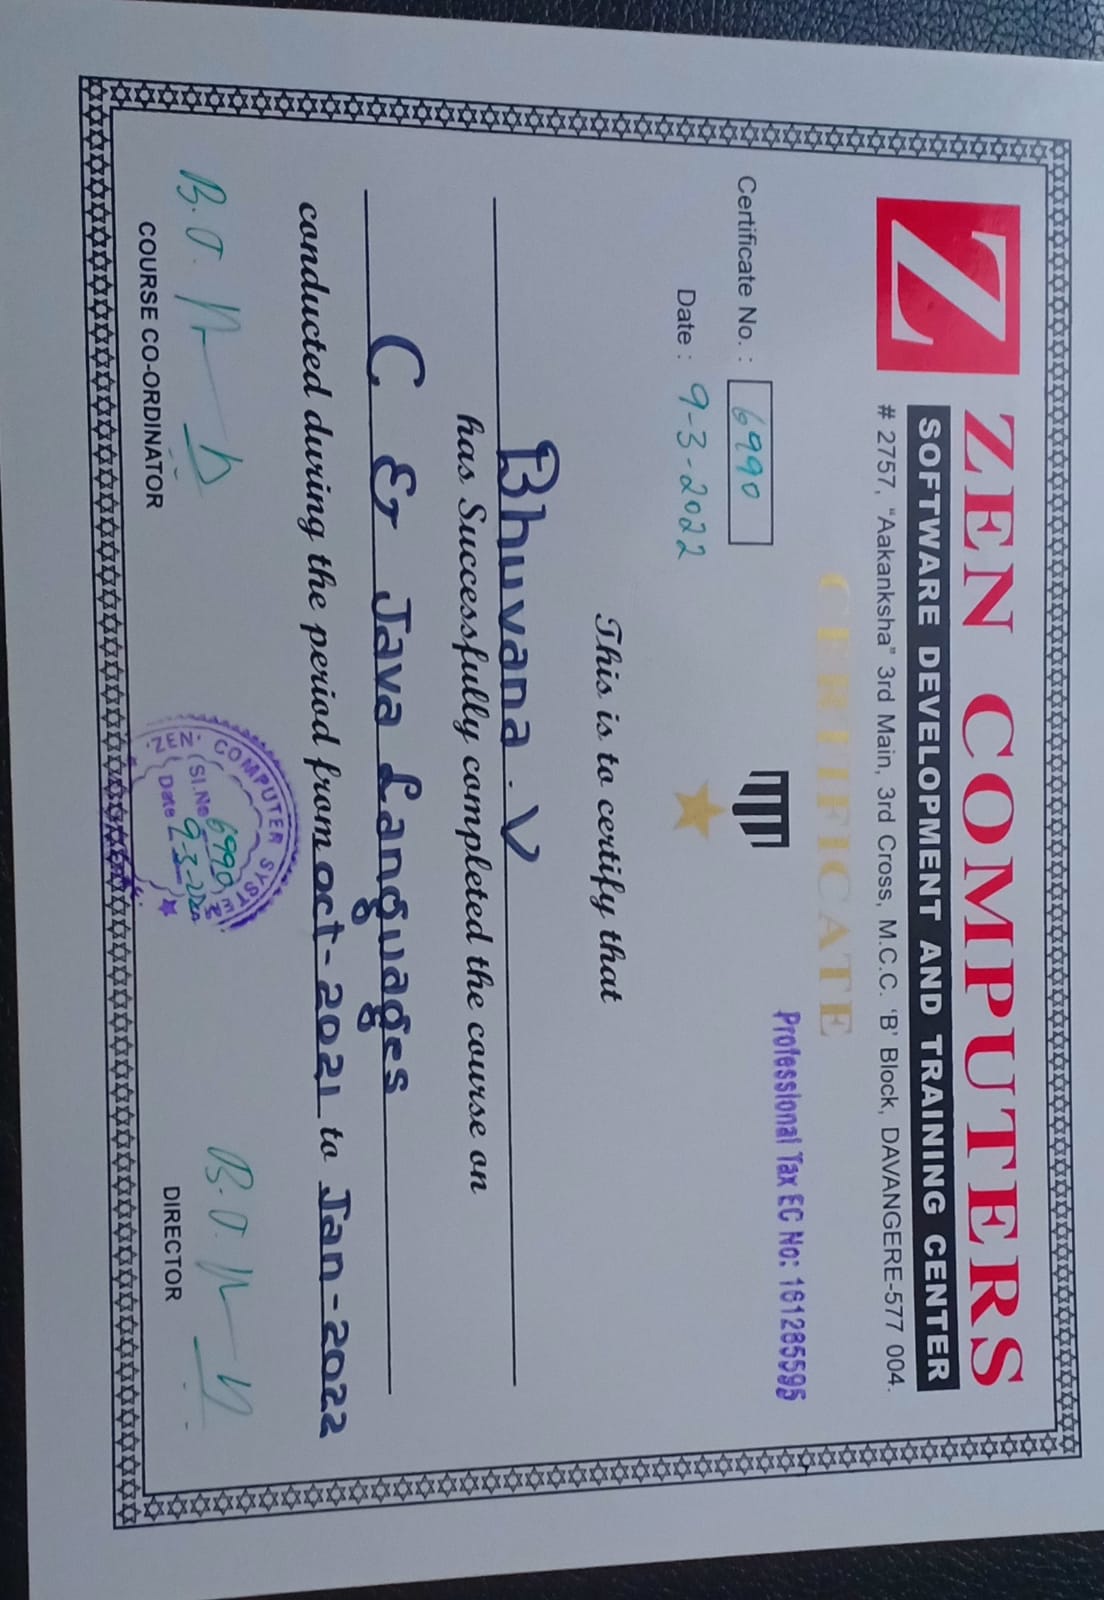 Z ZEN COMPUTERS
SOFTWARE DEVELOPMENT AND TRAINING CENTER
# 2757, “Aakanksha” 3rd Main, 3rd Cross, M.C.C. ‘B’ Block, DAVANGERE-577 004.
CERTIFICATE
Professional Tax EC No: 161285595
Certificate No. : 6990
Date : 9-3-2022
This is to certify that
Bhuvana . V
has Successfully completed the course on
C & Java Languages
conducted during the period from oct-2021 to Jan-2022
B.J.
COURSE CO-ORDINATOR
'ZEN' COMPUTER SYSTEMS
Sl.No 6990
Date 9-3-22
B.J.
DIRECTOR